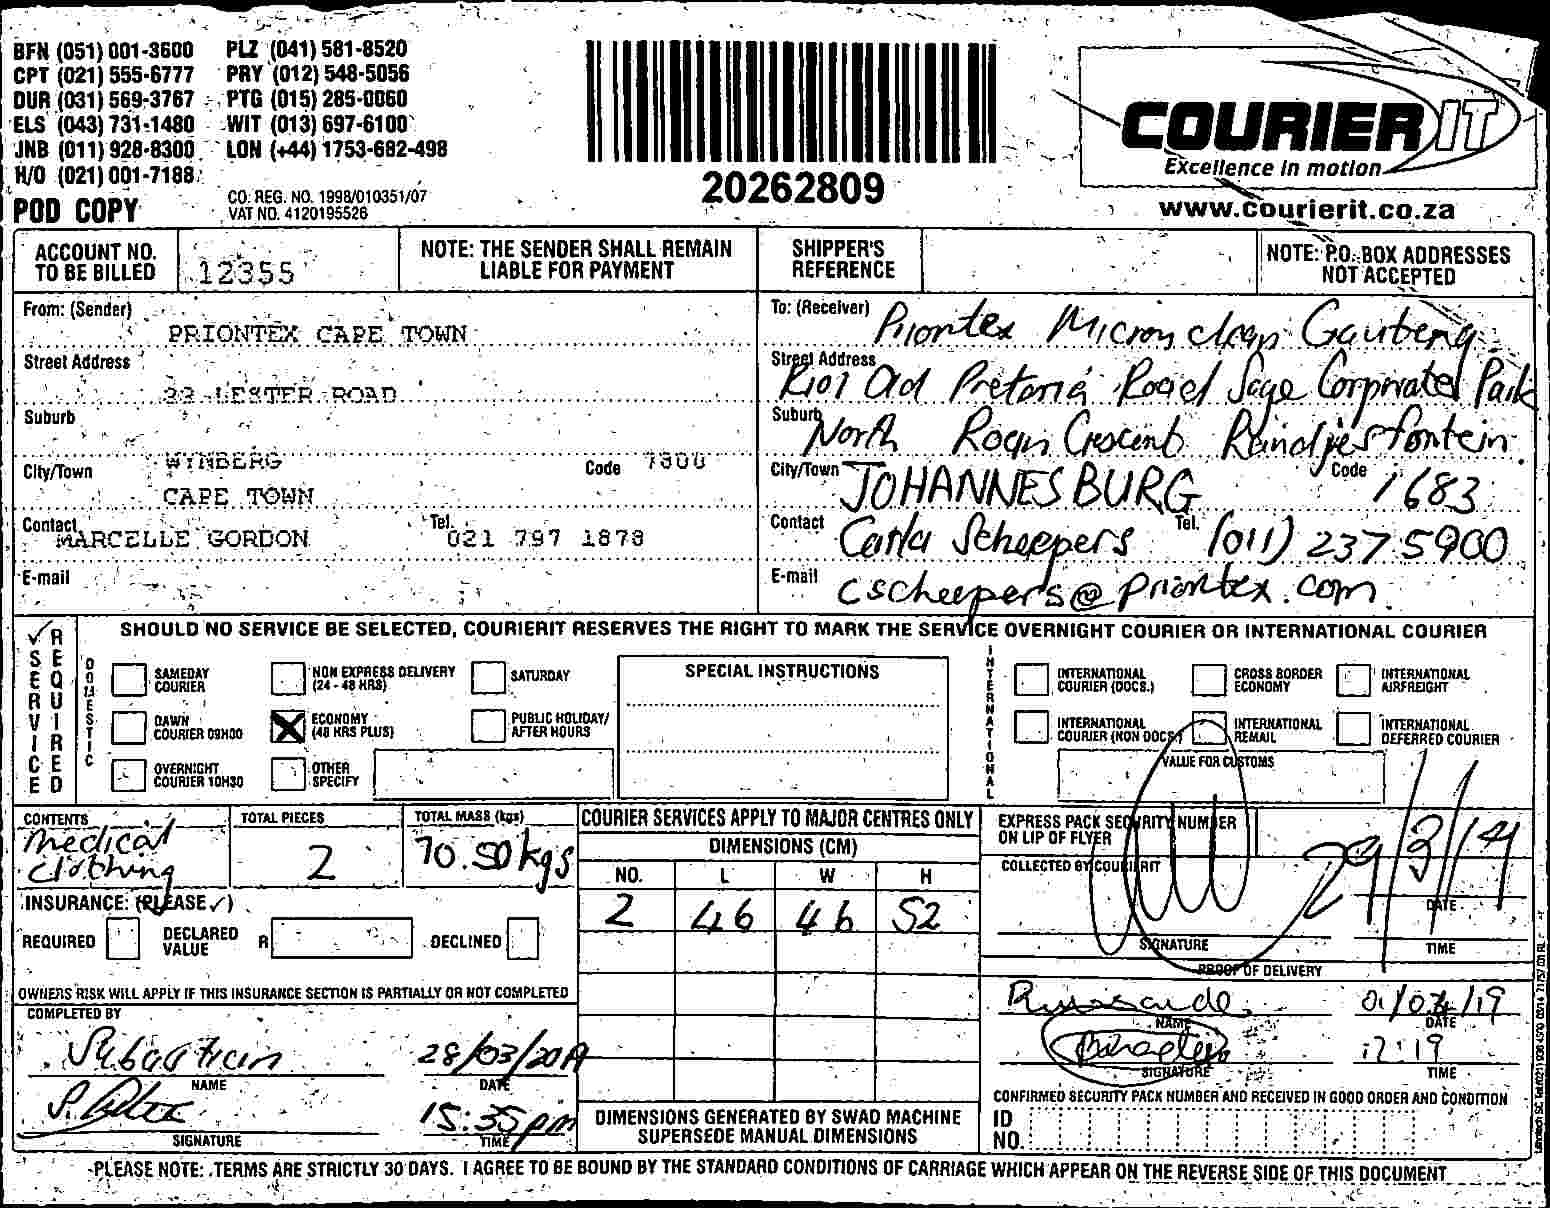 BFN (051) 001-3600 PLZ (041) 581-8520
CPT (021) 555-6777 PRY (012) 548-5056
DUR (031) 569-3767 PTG (015) 285-0060
ELS (043) 731-1480 WIT (013) 697-6100
JNB (011) 928-8300 LON (+44) 1753-682-498
H/O (021) 001-7188
CO. REG. NO. 1998/010351/07
VAT NO. 4120195526
POD COPY
20262809
COURIER IT
Excellence in motion
www.courierit.co.za
ACCOUNT NO. TO BE BILLED 12355
NOTE: THE SENDER SHALL REMAIN LIABLE FOR PAYMENT
SHIPPER'S REFERENCE
NOTE: P.O. BOX ADDRESSES NOT ACCEPTED
From: (Sender) PRIONTEX CAPE TOWN
Street Address 22 LESTER ROAD
Suburb WYNBERG
City/Town CAPE TOWN
Code 7800
Contact MARCELLE GORDON Tel. 021 797 1878
E-mail
To: (Receiver) Priontex Micronclean Gauteng
Street Address R101 Old Pretoria Road Sage Corporate Park
Suburb North Roan Crescent Randjesfontein
City/Town JOHANNESBURG Code 1683
Contact Carla Scheepers Tel. (011) 237 5900
E-mail cscheepers@priontex.com
SERVICE REQUIRED
SHOULD NO SERVICE BE SELECTED, COURIERIT RESERVES THE RIGHT TO MARK THE SERVICE OVERNIGHT COURIER OR INTERNATIONAL COURIER
DOMESTIC
SAMEDAY COURIER
NON EXPRESS DELIVERY (24 - 48 HRS)
SATURDAY
DAWN COURIER 09H00
ECONOMY (48 HRS PLUS)
PUBLIC HOLIDAY/ AFTER HOURS
OVERNIGHT COURIER 10H30
OTHER SPECIFY
SPECIAL INSTRUCTIONS
INTERNATIONAL
INTERNATIONAL COURIER (DOCS.)
CROSS BORDER ECONOMY
INTERNATIONAL AIRFREIGHT
INTERNATIONAL COURIER (NON DOCS.)
INTERNATIONAL REMAIL
INTERNATIONAL DEFERRED COURIER
VALUE FOR CUSTOMS
CONTENTS medical clothing
TOTAL PIECES 2
TOTAL MASS (kgs) 70.50kgs
INSURANCE: (PLEASE ✓)
REQUIRED
DECLARED VALUE R
DECLINED
OWNERS RISK WILL APPLY IF THIS INSURANCE SECTION IS PARTIALLY OR NOT COMPLETED
COMPLETED BY
28/03/2019
NAME DATE
15:35pm
SIGNATURE TIME
COURIER SERVICES APPLY TO MAJOR CENTRES ONLY
DIMENSIONS (CM)
NO. L W H
2 46 46 52
DIMENSIONS GENERATED BY SWAD MACHINE SUPERSEDE MANUAL DIMENSIONS
EXPRESS PACK SECURITY NUMBER ON LIP OF FLYER
COLLECTED BY COURIERIT
29/3/19
DATE
SIGNATURE TIME
PROOF OF DELIVERY
01/04/19
NAME DATE
12:19
SIGNATURE TIME
CONFIRMED SECURITY PACK NUMBER AND RECEIVED IN GOOD ORDER AND CONDITION
ID NO.
PLEASE NOTE: TERMS ARE STRICTLY 30 DAYS. I AGREE TO BE BOUND BY THE STANDARD CONDITIONS OF CARRIAGE WHICH APPEAR ON THE REVERSE SIDE OF THIS DOCUMENT